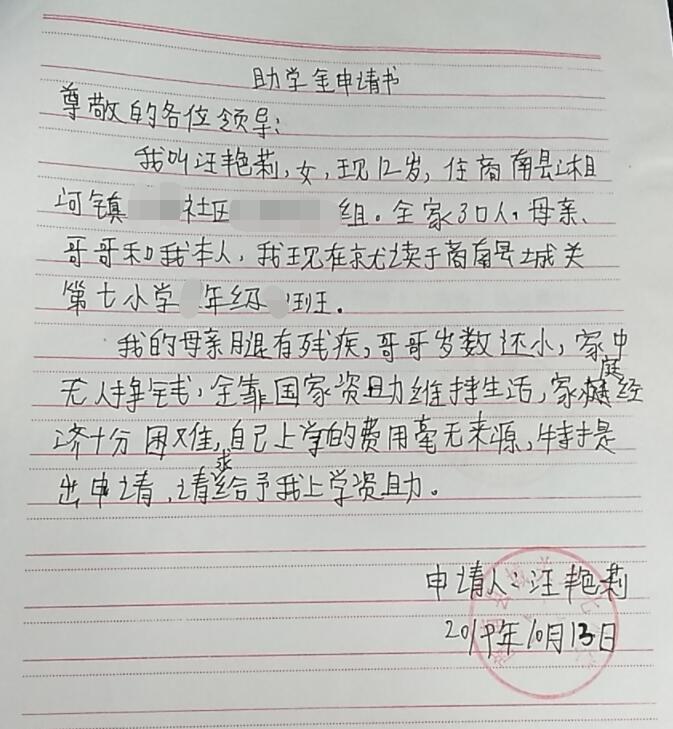 助学金申请书
尊敬的各位领导：
我叫汪艳莉，女，现12岁，住商南县湘
河镇社区组。全家3口人，母亲、
哥哥和我本人，我现在就读于商南县城关
第七小学年级班。
我的母亲腿有残疾，哥哥岁数还小，家中
无人挣钱，全靠国家资助维持生活，家庭经
济十分困难，自己上学的费用毫无来源，特于是
出申请，请求给予我上学资助。
申请人：汪艳莉
2019年10月13日